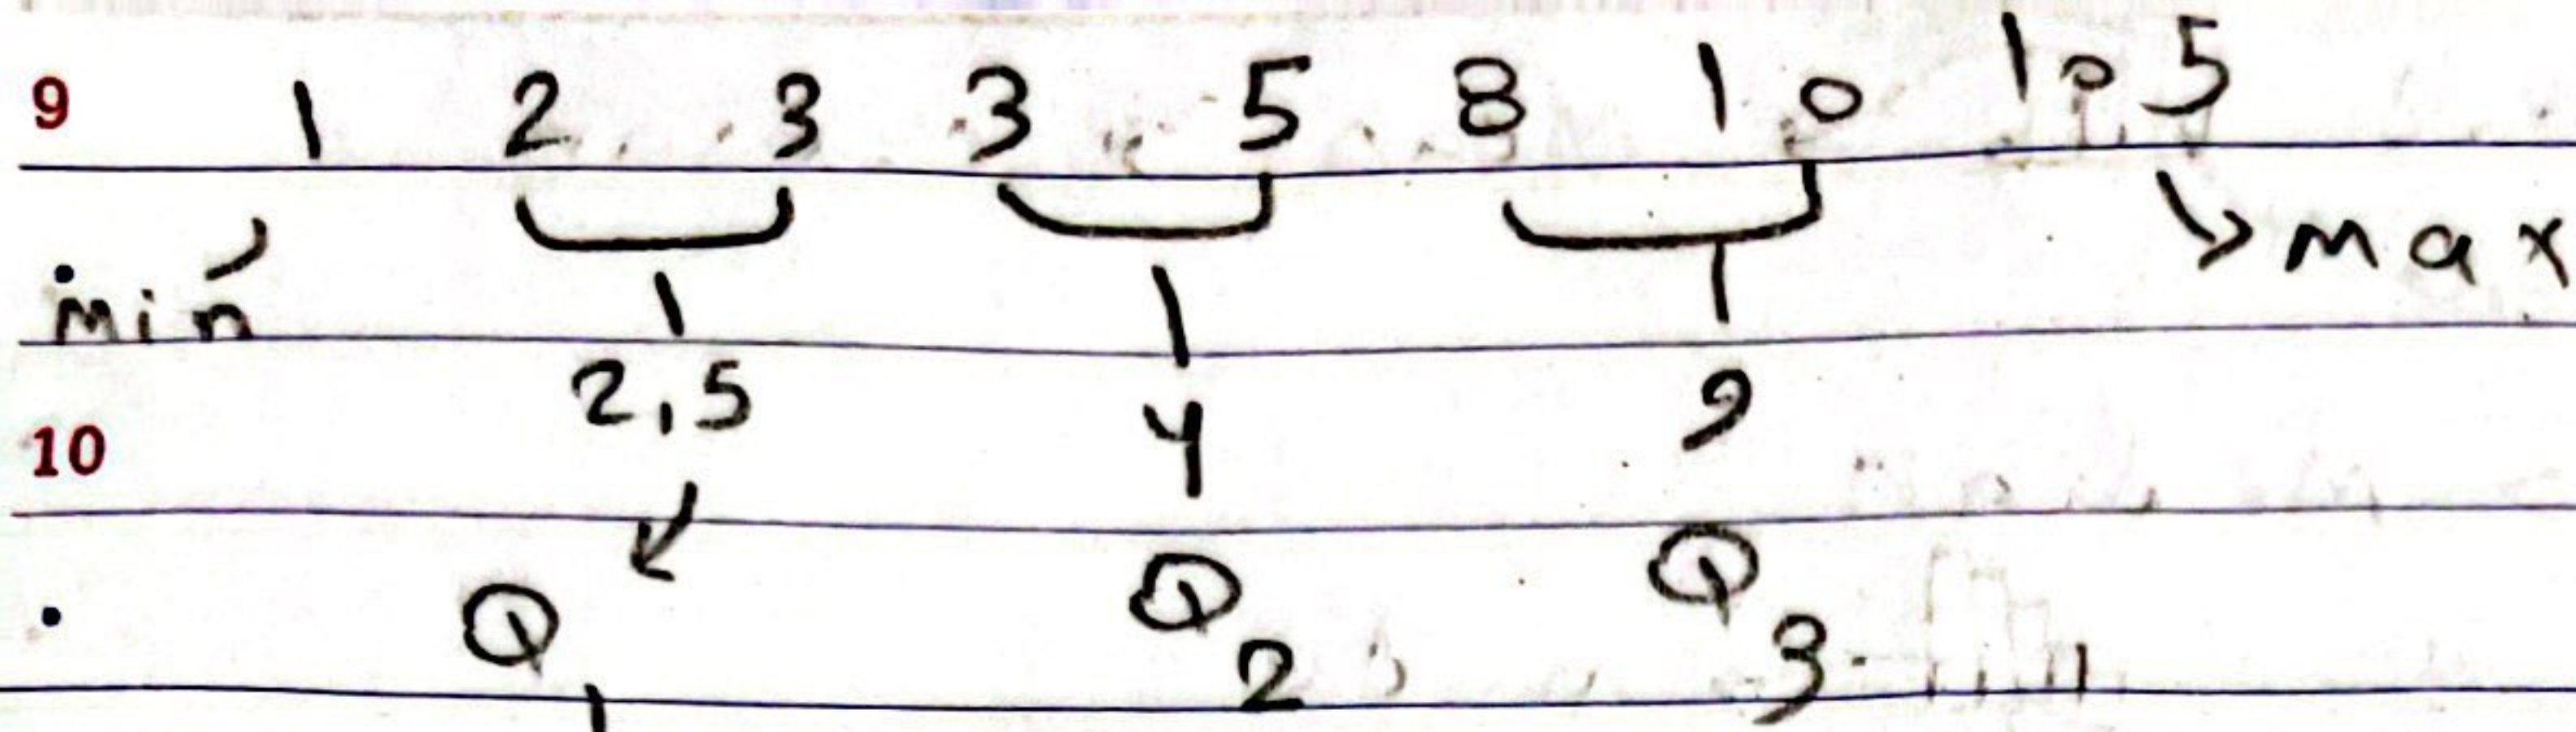 9 1 2 3 3 5 8 10 105
min max
2,5 4 9
10
Q1 Q2 Q3